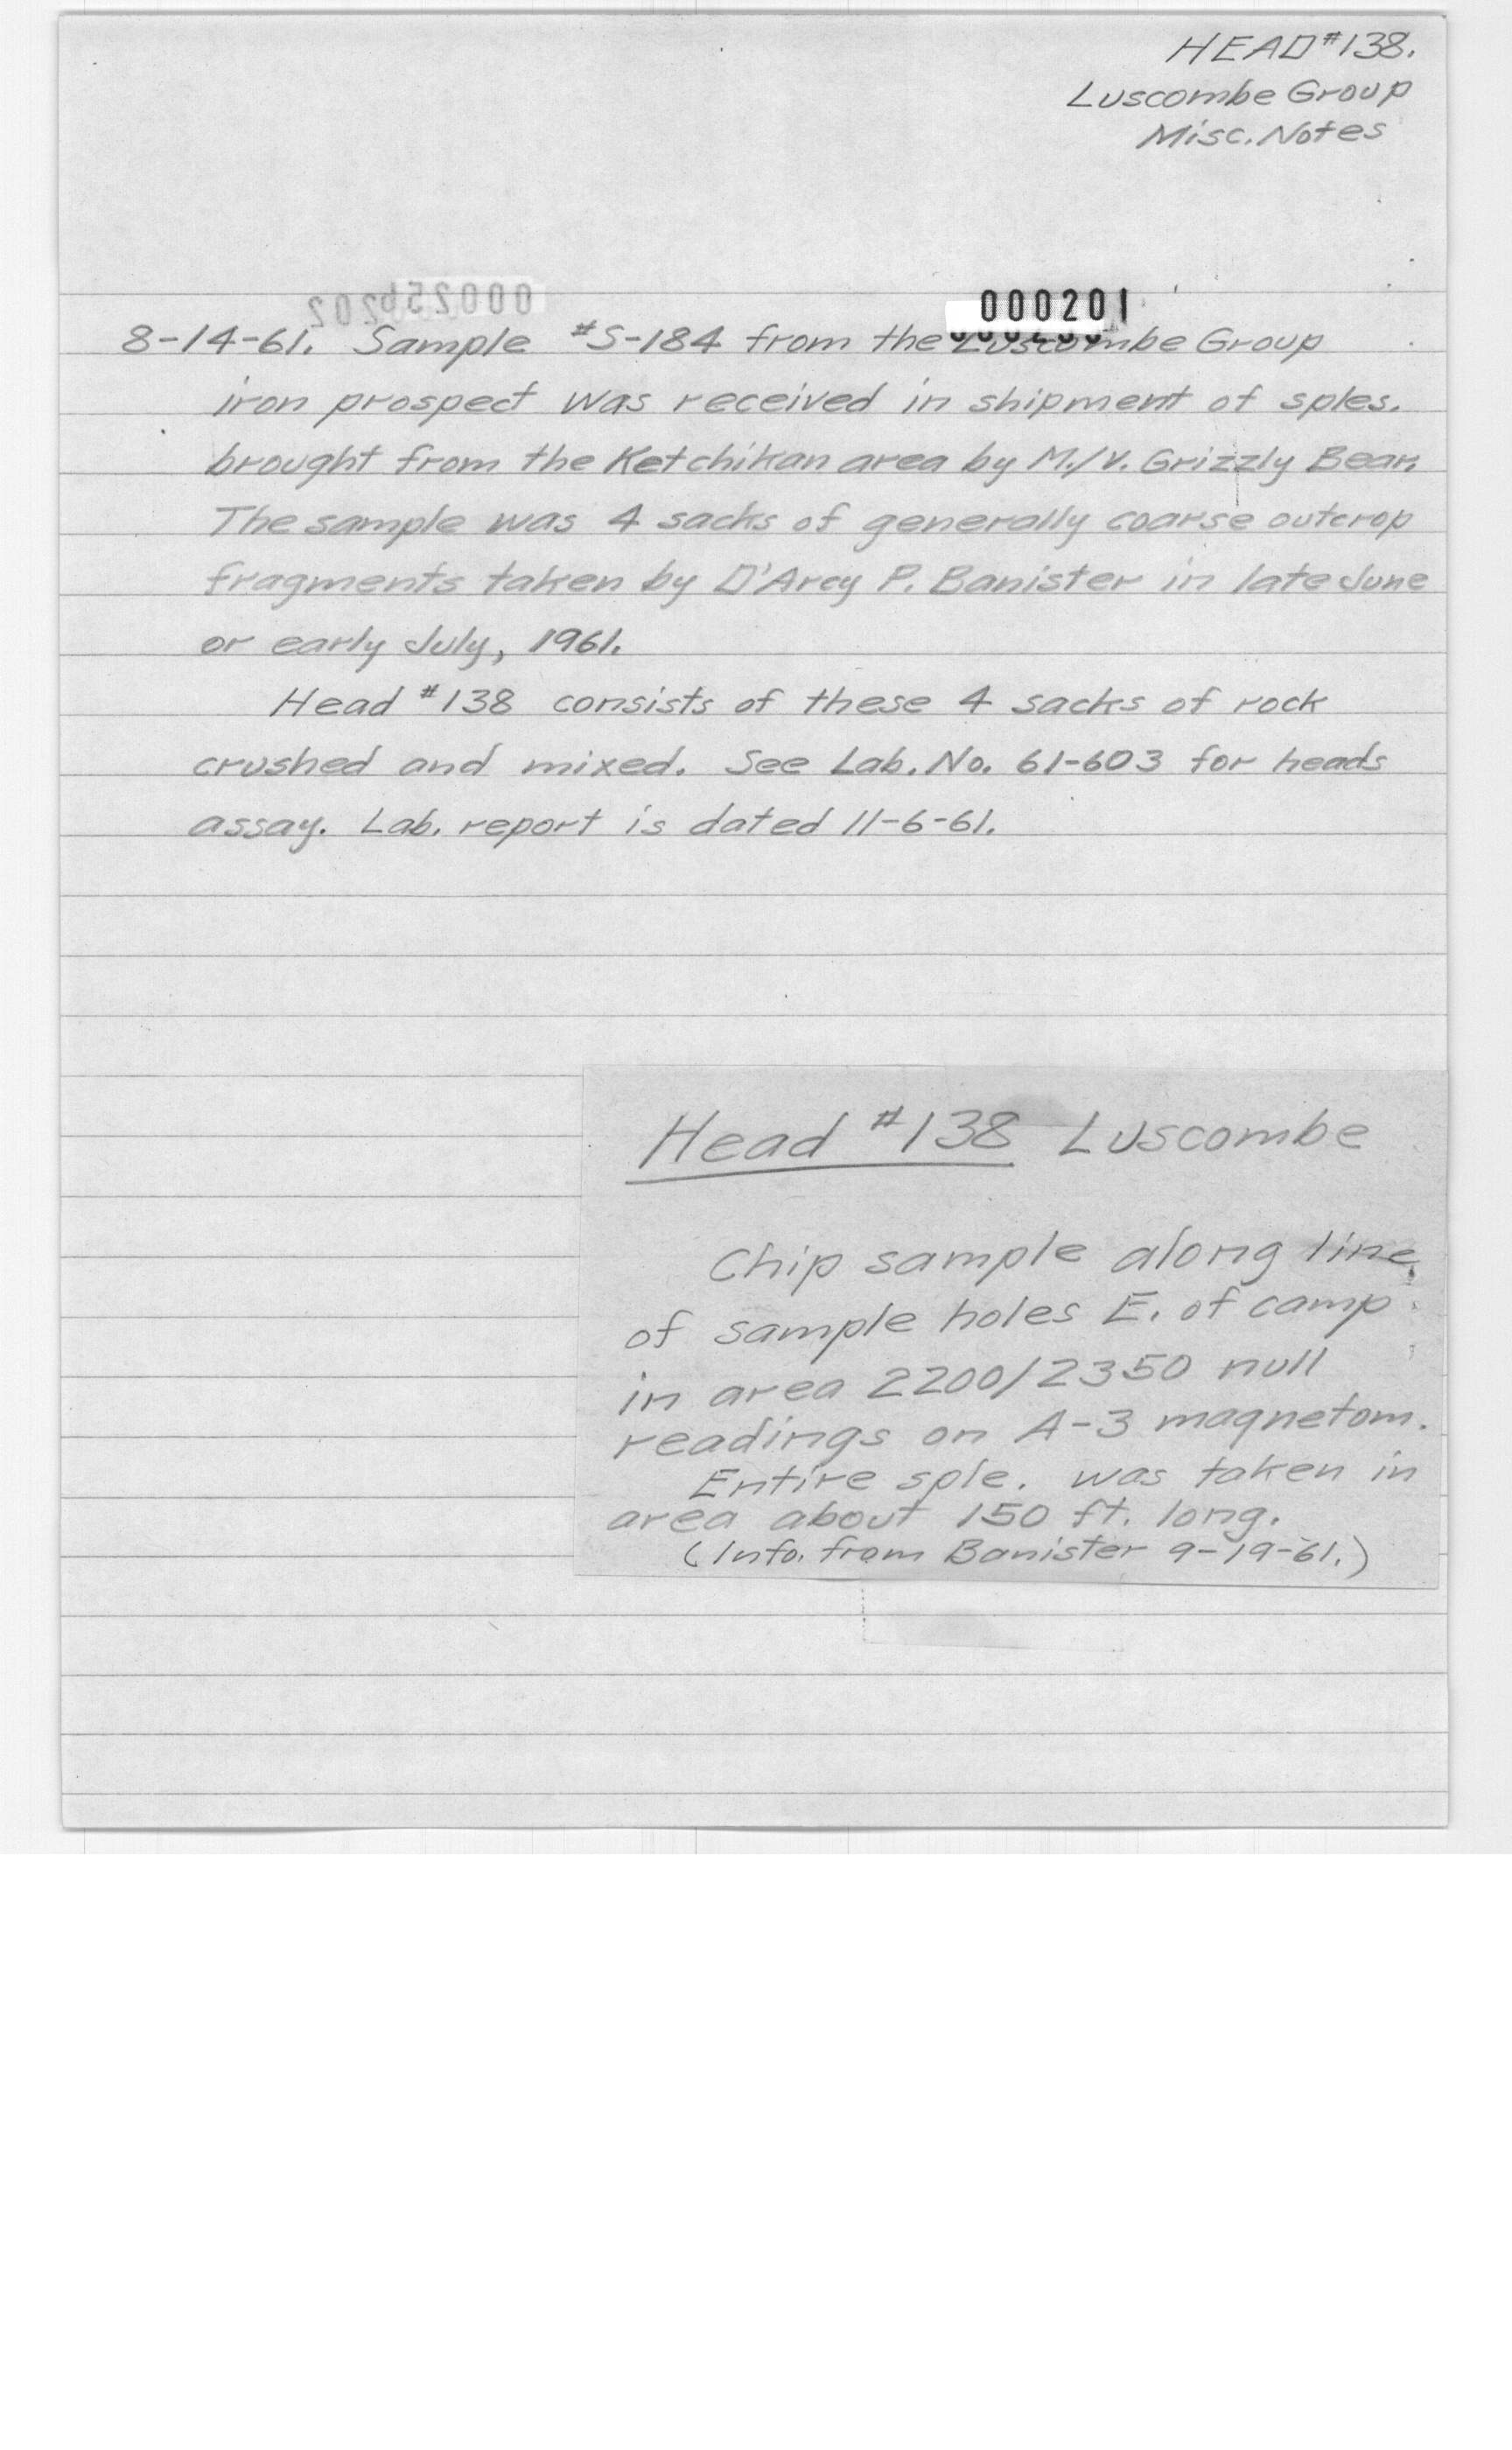 HEAD #138.
Luscombe Group
Misc. Notes
000201
8-14-61. Sample #S-184 from the Luscombe Group
iron prospect was received in shipment of sples.
brought from the Ketchikan area by M./V. Grizzly Bear.
The sample was 4 sacks of generally coarse outcrop
fragments taken by D'Arcy P. Banister in late June
or early July, 1961.
Head #138 consists of these 4 sacks of rock
crushed and mixed. See Lab. No. 61-603 for heads
assay. Lab. report is dated 11-6-61.
Head #138 Luscombe
Chip sample along line
of sample holes E. of camp
in area 2200/2350 null
readings on A-3 magnetom.
Entire sple. was taken in
area about 150 ft. long.
(Info. from Banister 9-19-61.)